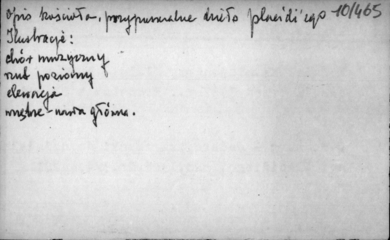 opis kościoła, przypuszczalne dzieło placidi'ego 10/465
Ilustracje:
chór muzyczny
rzut poziomy
elewacja
wnętrze - nawa główna.